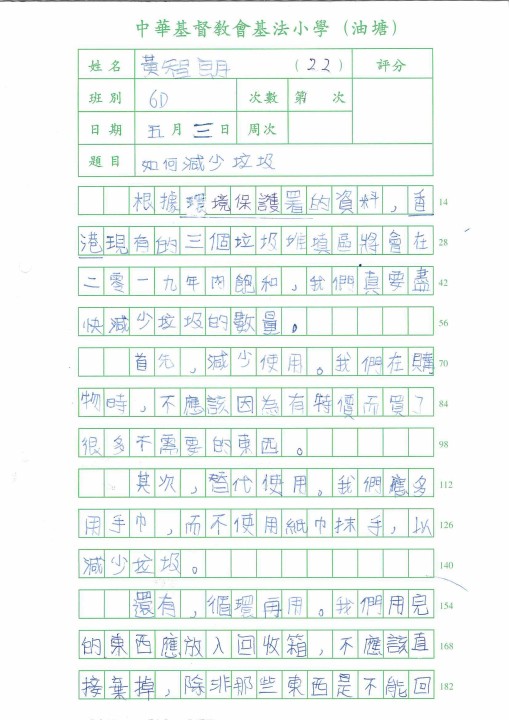 中華基督教會基法小學（油塘）
姓名 黃智朗 (22) 評分
班別 6D 次數 第 次
日期 五月三日 周次
題目 如何減少垃圾
根據環境保護署的資料，香 14
港現有的三個垃圾堆填區將會在 28
二零一九年內飽和，我們真要盡 42
快減少垃圾的數量。 56
首先，減少使用。我們在購 70
物時，不應該因為有特價而買了 84
很多不需要的東西。 98
其次，替代使用。我們應多 112
用手巾，而不使用紙巾抹手，以 126
減少垃圾。 140
還有，循環再用。我們用完 154
的東西應放入回收箱，不應該直 168
接棄掉，除非那些東西是不能回 182